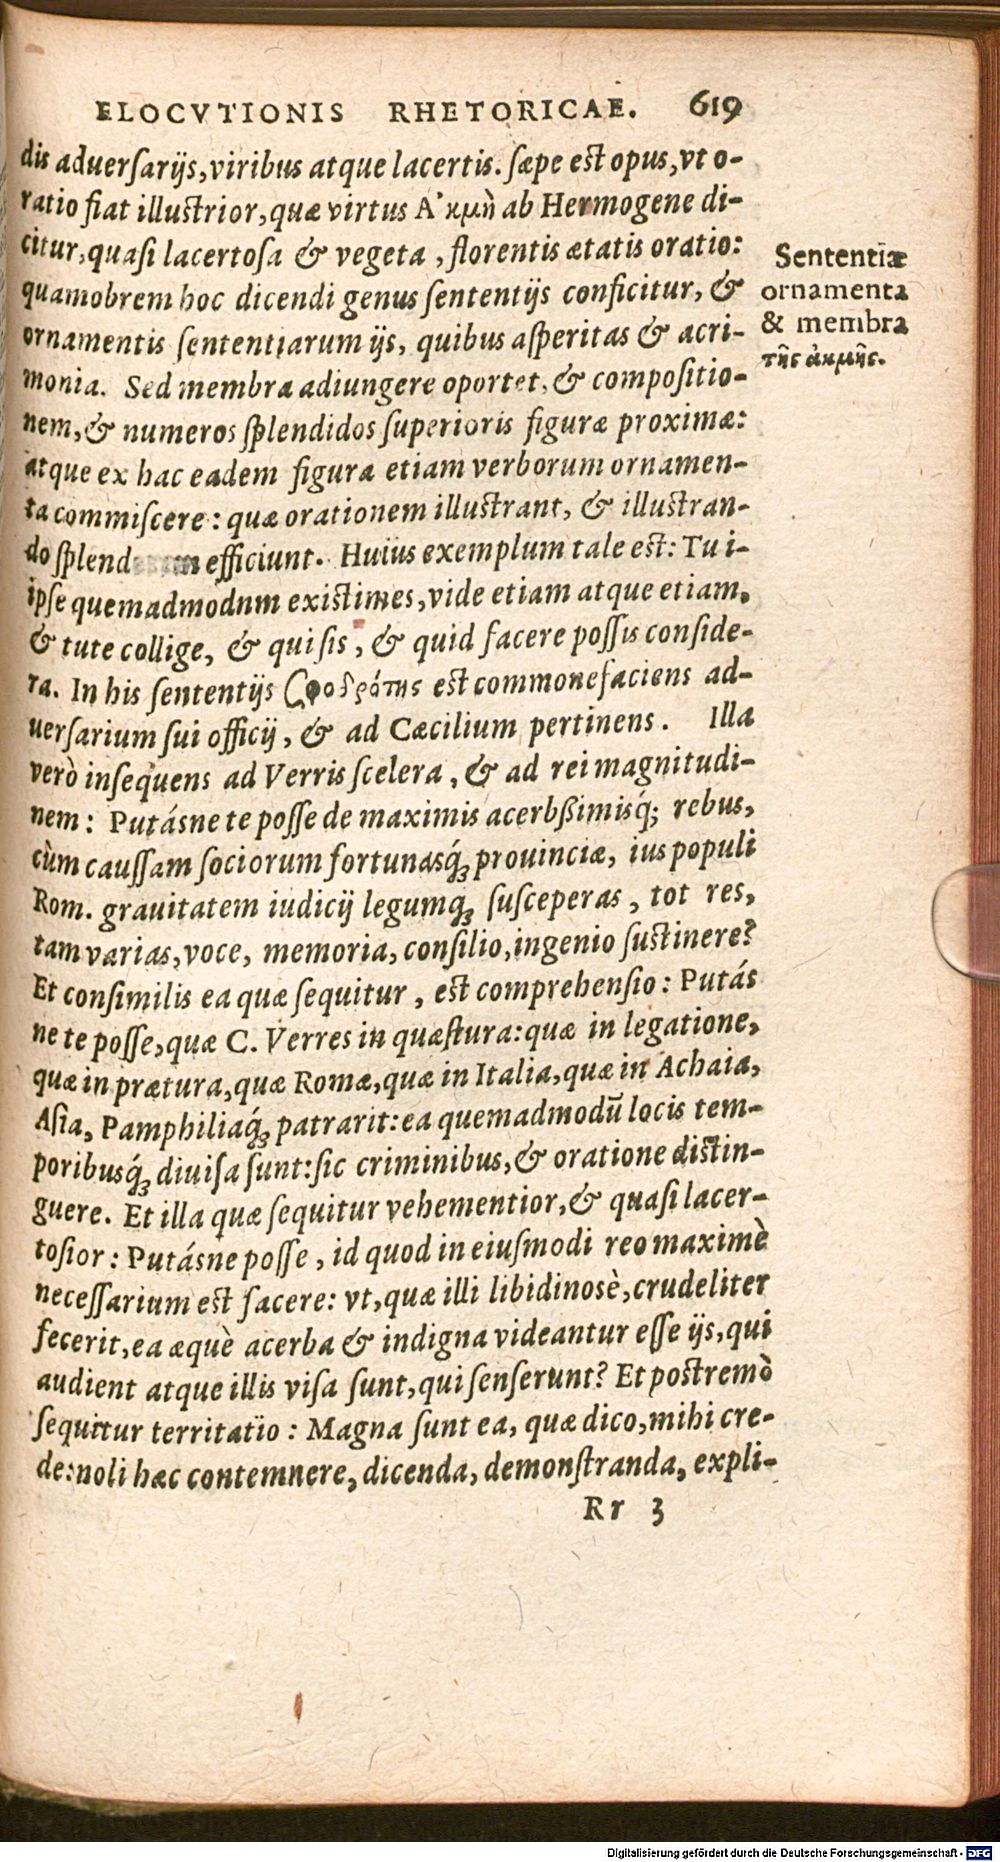 ELOCVTIONIS RHETORICAE. 619
dis aduersarijs, viribus atque lacertis. sæpe est opus, vt o-
ratio fiat illustrior, quæ virtus Α᾽κμὴ ab Hermogene di-
citur, quasi lacertosa & vegeta, florentis ætatis oratio:
quamobrem hoc dicendi genus sententijs conficitur, &
ornamentis sententiarum ijs, quibus asperitas & acri-
monia. Sed membra adiungere oportet, & compositio-
nem, & numeros splendidos superioris figuræ proximæ:
atque ex hac eadem figura etiam verborum ornamen-
ta commiscere: quæ orationem illustrant, & illustran-
do efficiunt. Huius exemplum tale est: Tu i-
ipse quemadmodnm existimes, vide etiam atque etiam,
& tute collige, & qui sis, & quid facere possis conside-
ra. In his sententijs Σφοδρότης est commonefaciens ad-
uersarium sui officij, & ad Cæcilium pertinens. Illa
verò insequens ad Verris scelera, & ad rei magnitudi-
nem: Putásne te posse de maximis acerbßimisq́; rebus,
cùm caussam sociorum fortunasq́ꝫ prouinciæ, ius populi
Rom. grauitatem iudicij legumq́ꝫ susceperas, tot res,
tam varias, voce, memoria, consilio, ingenio sustinere?
Et consimilis ea quæ sequitur, est comprehensio: Putás
ne te posse, quæ C. Verres in quæstura: quæ in legatione,
quæ in prætura, quæ Romæ, quæ in Italia, quæ in Achaia,
Asia, Pamphiliaq́ꝫ patrarit: ea quemadmodū locis tem-
poribusq́ꝫ diuisa sunt: sic criminibus, & oratione distin-
guere. Et illa quæ sequitur vehementior, & quasi lacer-
tosior: Putásne posse, id quod in eiusmodi reo maximè
necessarium est facere: vt, quæ illi libidinosè, crudeliter
fecerit, ea æquè acerba & indigna videantur esse ijs, qui
audient atque illis visa sunt, qui senserunt? Et postremò
sequitur territatïo: Magna sunt ea, quæ dico, mihi cre-
de: noli hæc contemnere, dicenda, demonstranda, expli-
Rr 3
Sententiæ
ornamenta
& membra
τῆς ἀκμῆς.
Digitalisierung gefördert durch die Deutsche Forschungsgemeinschaft - DFG